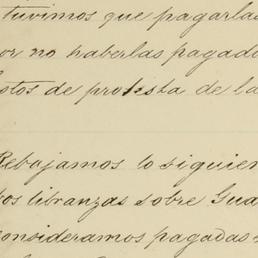 tuvimos que pagarlas
or no haberlas pagado
stos de protesta de la
Rebajamos lo siguien
os libranzas sobre Gua
consideramos pagadas